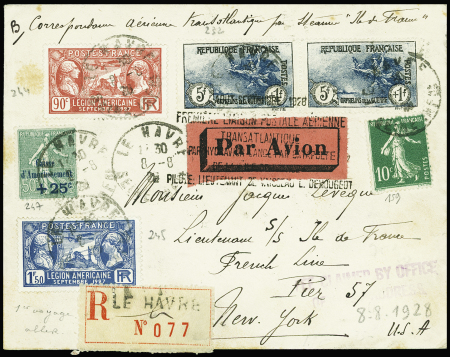 B/ Correspondance Aérienne Transatlantique par Steamer "Ile de France"
232
244
POSTES·FRANCE
90c
LEGION AMERICAINE
SEPTEMBRE 1927
RF
REPUBLIQUE FRANÇAISE
5F
+1F
POSTES
ORPHELINS DE LA GUERRE
REPUBLIQUE FRANÇAISE
5F
+1F
POSTES
ORPHELINS DE LA GUERRE
1928
PREMIERE LIAISON POSTALE AERIENNE
TRANSATLANTIQUE
PAR HYDRAVION LANCE PAR CATAPULTE
Par Avion
PILOTE: LIEUTENANT DE VAISSEAU L. DEMOUGEOT
LE HAVRE
8-8
Caisse
d'Amortissement
+25c
247
10c
159
Monsieur Jacques Levêque
Lieutenant S/S Ile de France
French Line
Pier 57
New. York
U.S.A
POSTES·FRANCE
1f50
LEGION AMERICAINE
SEPTEMBRE 1927
RF
245
BY OFFICE
8-8-1928
1er voyage
aller
R
LE HAVRE
N° 077